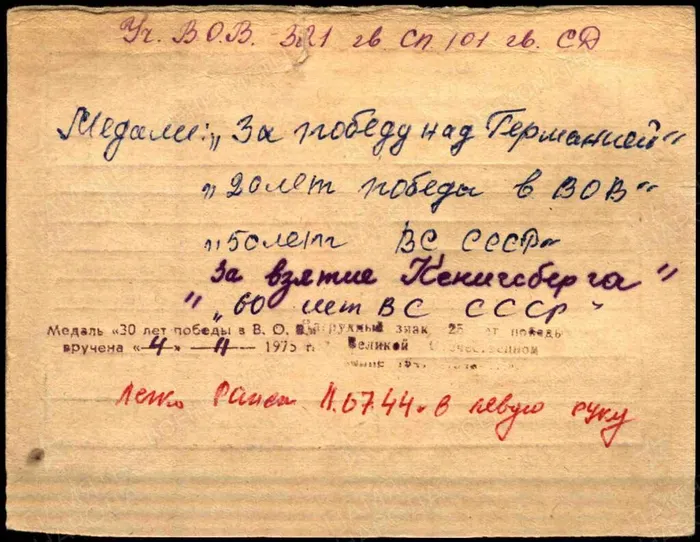 Уч. В.О.В. 321 гв СП 101 гв. СД
Медали: „За победу над Германией"
„20 лет победы в ВОВ"
„50 лет ВС СССР"
За взятие Кенигсберга"
" „60 лет ВС СССР"
Медаль «30 лет победы в В. О. В.» Нагрудный знак 25 лет победы
вручена «4» 11 1975 г. Великой Отечественной
Легко ранен 11.07.44 в левую руку